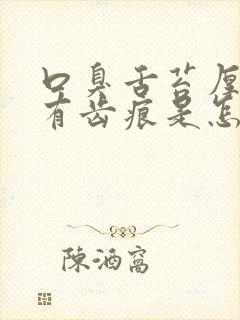 口臭舌苔厚
有齿痕是怎
陳酒窩